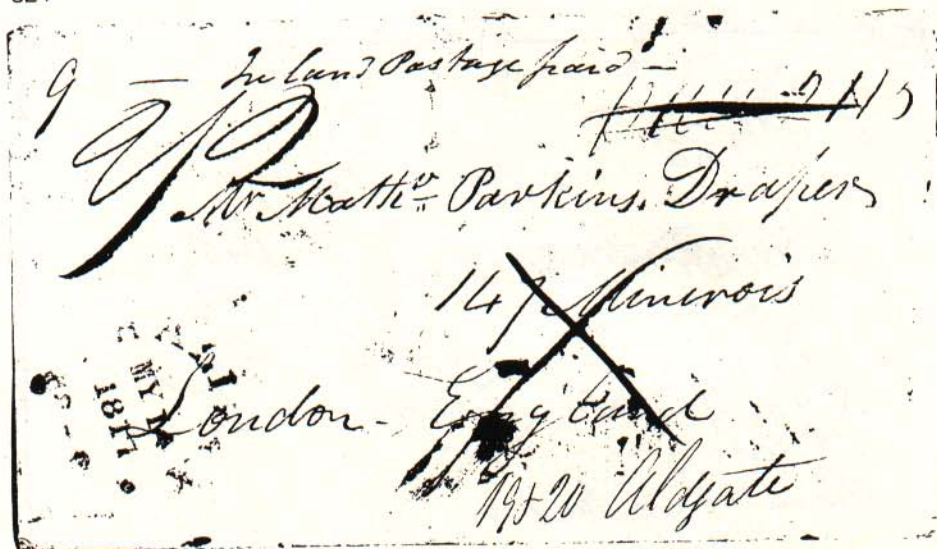 9 — Inland Postage paid —
Mr Matthw Parkins. Draper
147 Minorois
London - England
19 & 20 Aldgate
MY
1817